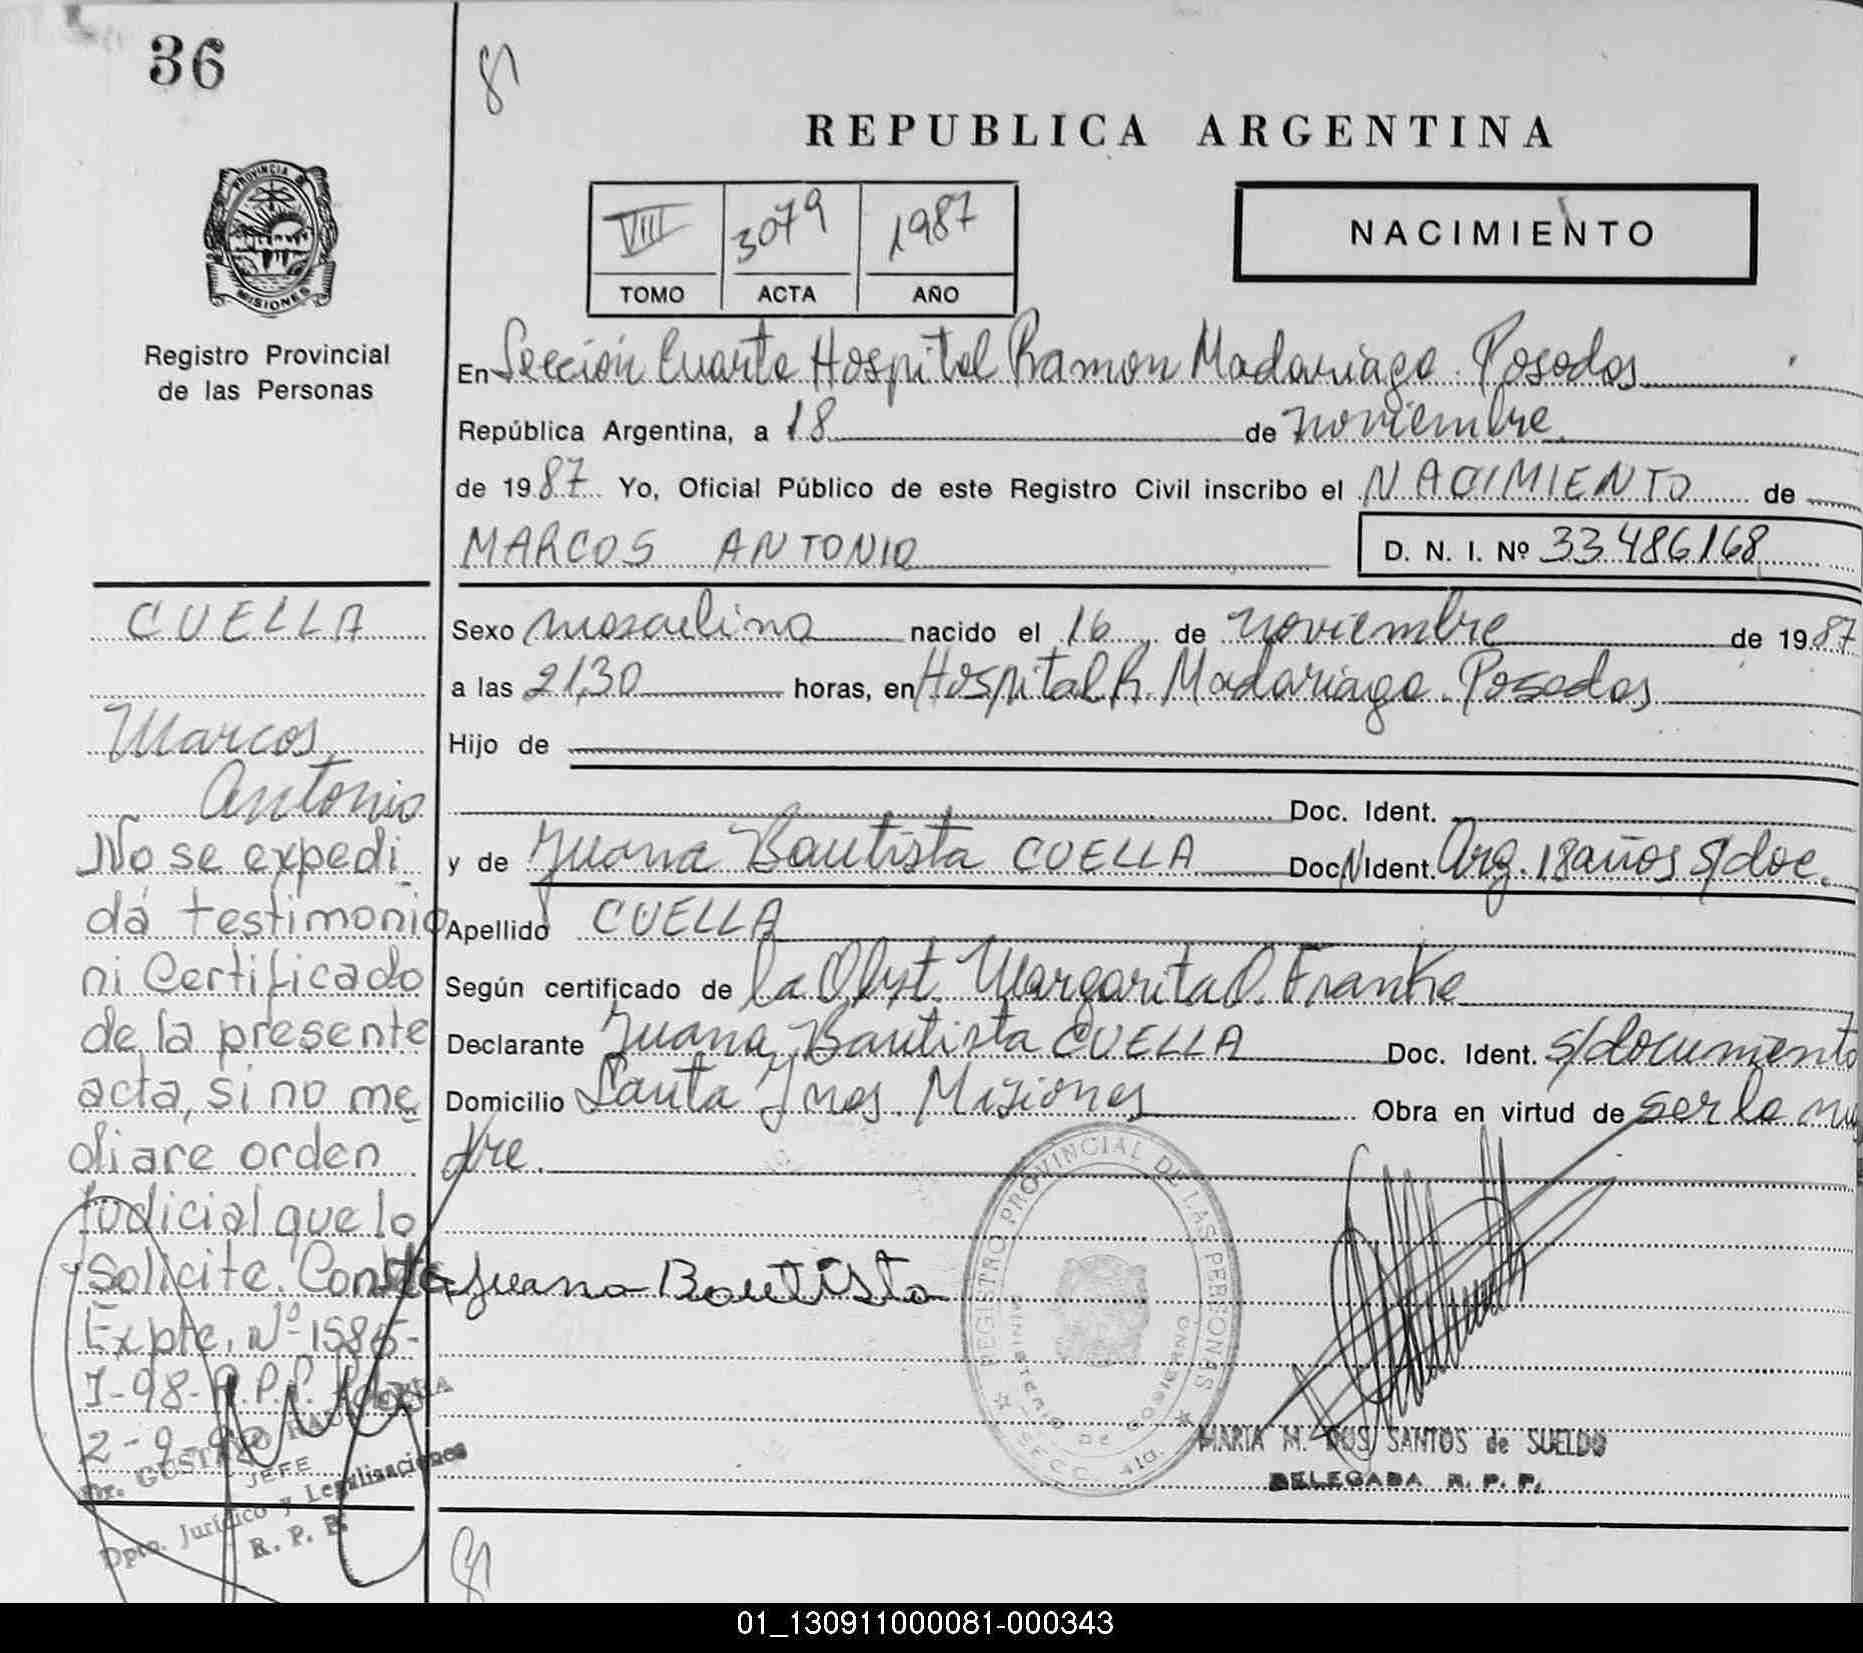 36
81
REPUBLICA ARGENTINA
VIII 3079 1987
TOMO ACTA AÑO
NACIMIENTO
PROVINCIA D
MISIONES
Registro Provincial
de las Personas
En Sección Cuarta Hospital Ramon Madariaga. Posadas
República Argentina, a 18 de noviembre
de 1987 Yo, Oficial Público de este Registro Civil inscribo el NACIMIENTO de
MARCOS ANTONIO
D. N. I. Nº 33.486.168
Sexo masculino nacido el 16 de noviembre de 1987
a las 21,30 horas, en Hospital R. Madariaga. Posadas
Hijo de
Doc. Ident.
y de Juana Bautista CUELLA Doc. N Ident. Arg. 18 años s/doc.
Apellido CUELLA
Según certificado de la Obst. Margarita O. Franke
Declarante Juana Bautista CUELLA Doc. Ident. s/documento
Domicilio Santa Ynes. Misiones Obra en virtud de ser la ma
dre.
Juana Bautista
REGISTRO PROVINCIAL DE LAS PERSONAS
MINISTERIO DE GOBIERNO
SECC. 4ta.
MARIA M. DOS SANTOS de SUELDO
DELEGADA R. P. P.
CUELLA
Marcos
Antonio
No se expedi
dá testimonio
ni Certificado
de la presente
acta, si no me
diare orden
Judicial que lo
solicite. Consta
Expte. Nº 1586-
J-98-R.P.P.
2-9-98
Dr. GUSTAVO
JEFE
Dpto. Jurídico y Legalisaciones
R. P. P.
81
01_130911000081-000343